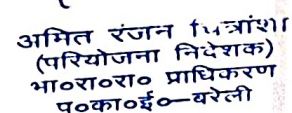 अमित रंजन
(परियोजना निदेशक)
भा०रा०रा० प्राधिकरण
प०का०ई०—बरेली